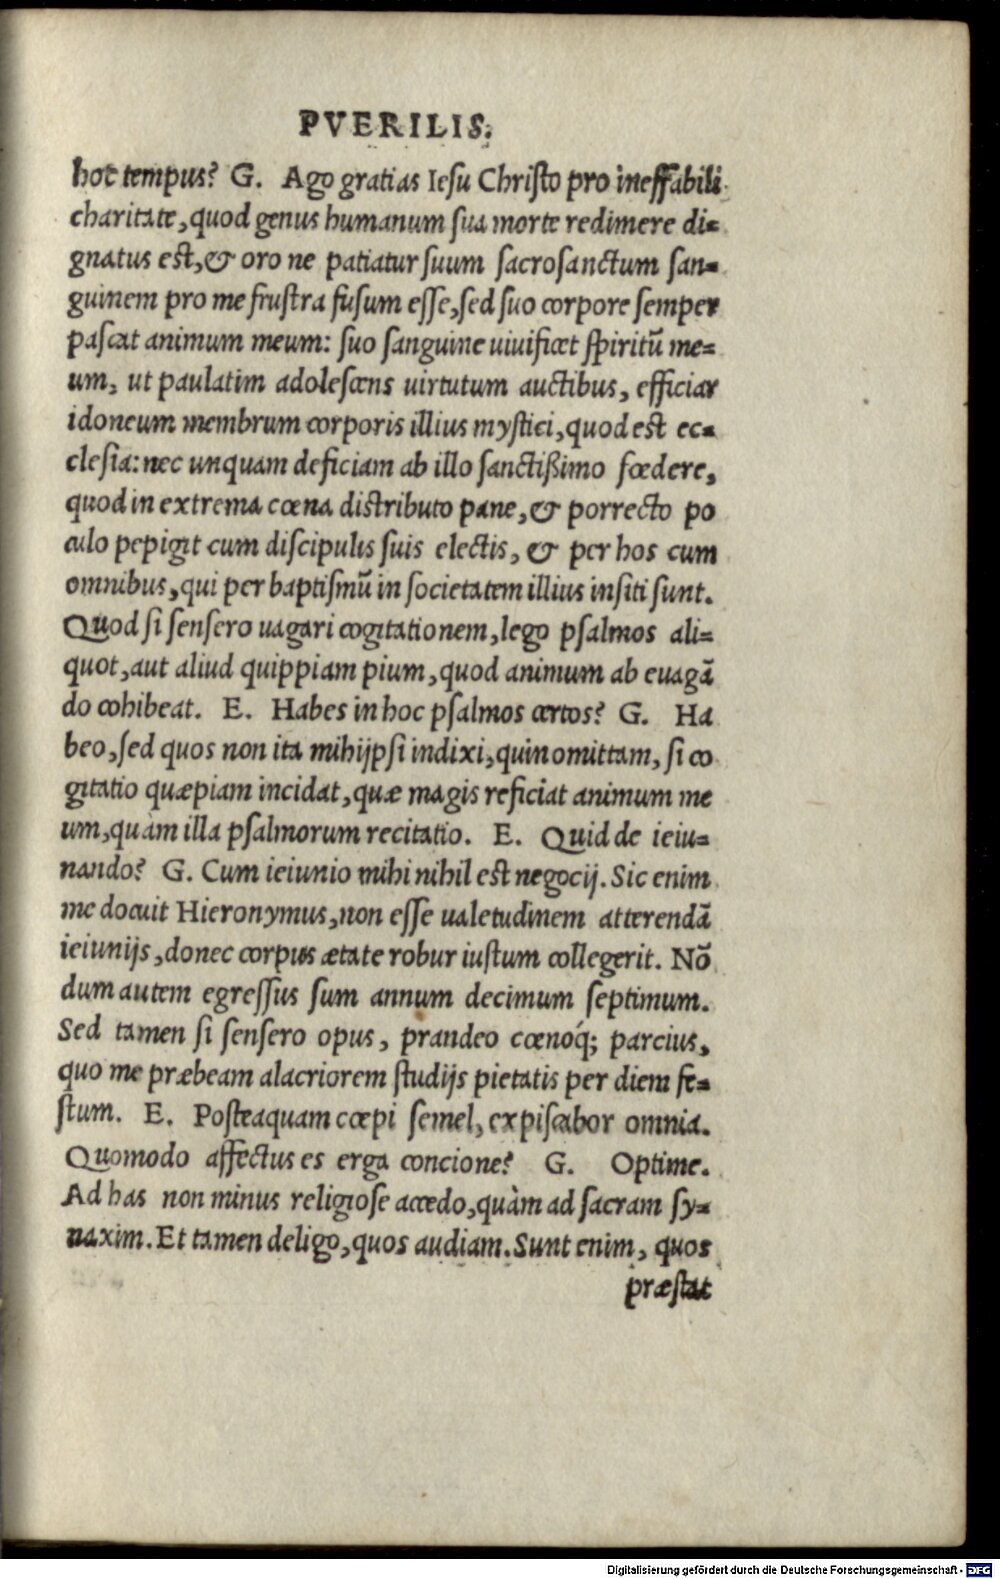 PVERILIS.
hoc tempus? G. Ago gratias Iesu Chriſto pro ineffabili
charitate, quod genus humanum ſua morte redimere di=
gnatus eſt, & oro ne patiatur ſuum ſacroſanctum ſan=
guinem pro me fruſtra fuſum eſſe, ſed ſuo corpore ſemper
paſcat animum meum: ſuo ſanguine uiuificet ſpiritũ me=
um, ut paulatim adoleſcens uirtutum auctibus, efficiar
idoneum membrum corporis illius myſtici, quod eſt ec=
cleſia: nec unquam deficiam ab illo ſanctißimo fœdere,
quod in extrema cœna diſtributo pane, & porrecto po
culo pepigit cum diſcipulis ſuis electis, & per hos cum
omnibus, qui per baptiſmũ in ſocietatem illius inſiti ſunt.
Quod ſi ſenſero uagari cogitationem, lego pſalmos ali=
quot, aut aliud quippiam pium, quod animum ab euagã
do cohibeat. E. Habes in hoc pſalmos certos? G. Ha
beo, ſed quos non ita mihijpſi indixi, quin omittam, ſi co
gitatio quæpiam incidat, quæ magis reficiat animum me
um, quàm illa pſalmorum recitatio. E. Quid de ieiu=
nando? G. Cum ieiunio mihi nihil eſt negocij. Sic enim
me docuit Hieronymus, non eſſe ualetudinem atterendã
ieiunijs, donec corpus ætate robur iuſtum collegerit. Nõ
dum autem egreſſus ſum annum decimum ſeptimum.
Sed tamen ſi ſenſero opus, prandeo cœnoq́; parcius,
quo me præbeam alacriorem ſtudijs pietatis per diem fe=
ſtum. E. Poſteaquam cœpi ſemel, expiſcabor omnia.
Quomodo affectus es erga concione? G. Optime.
Ad has non minus religioſe accedo, quàm ad ſacram ſy=
naxim. Et tamen deligo, quos audiam. Sunt enim, quos
præſtat
Digitalisierung gefördert durch die Deutsche Forschungsgemeinschaft - DFG